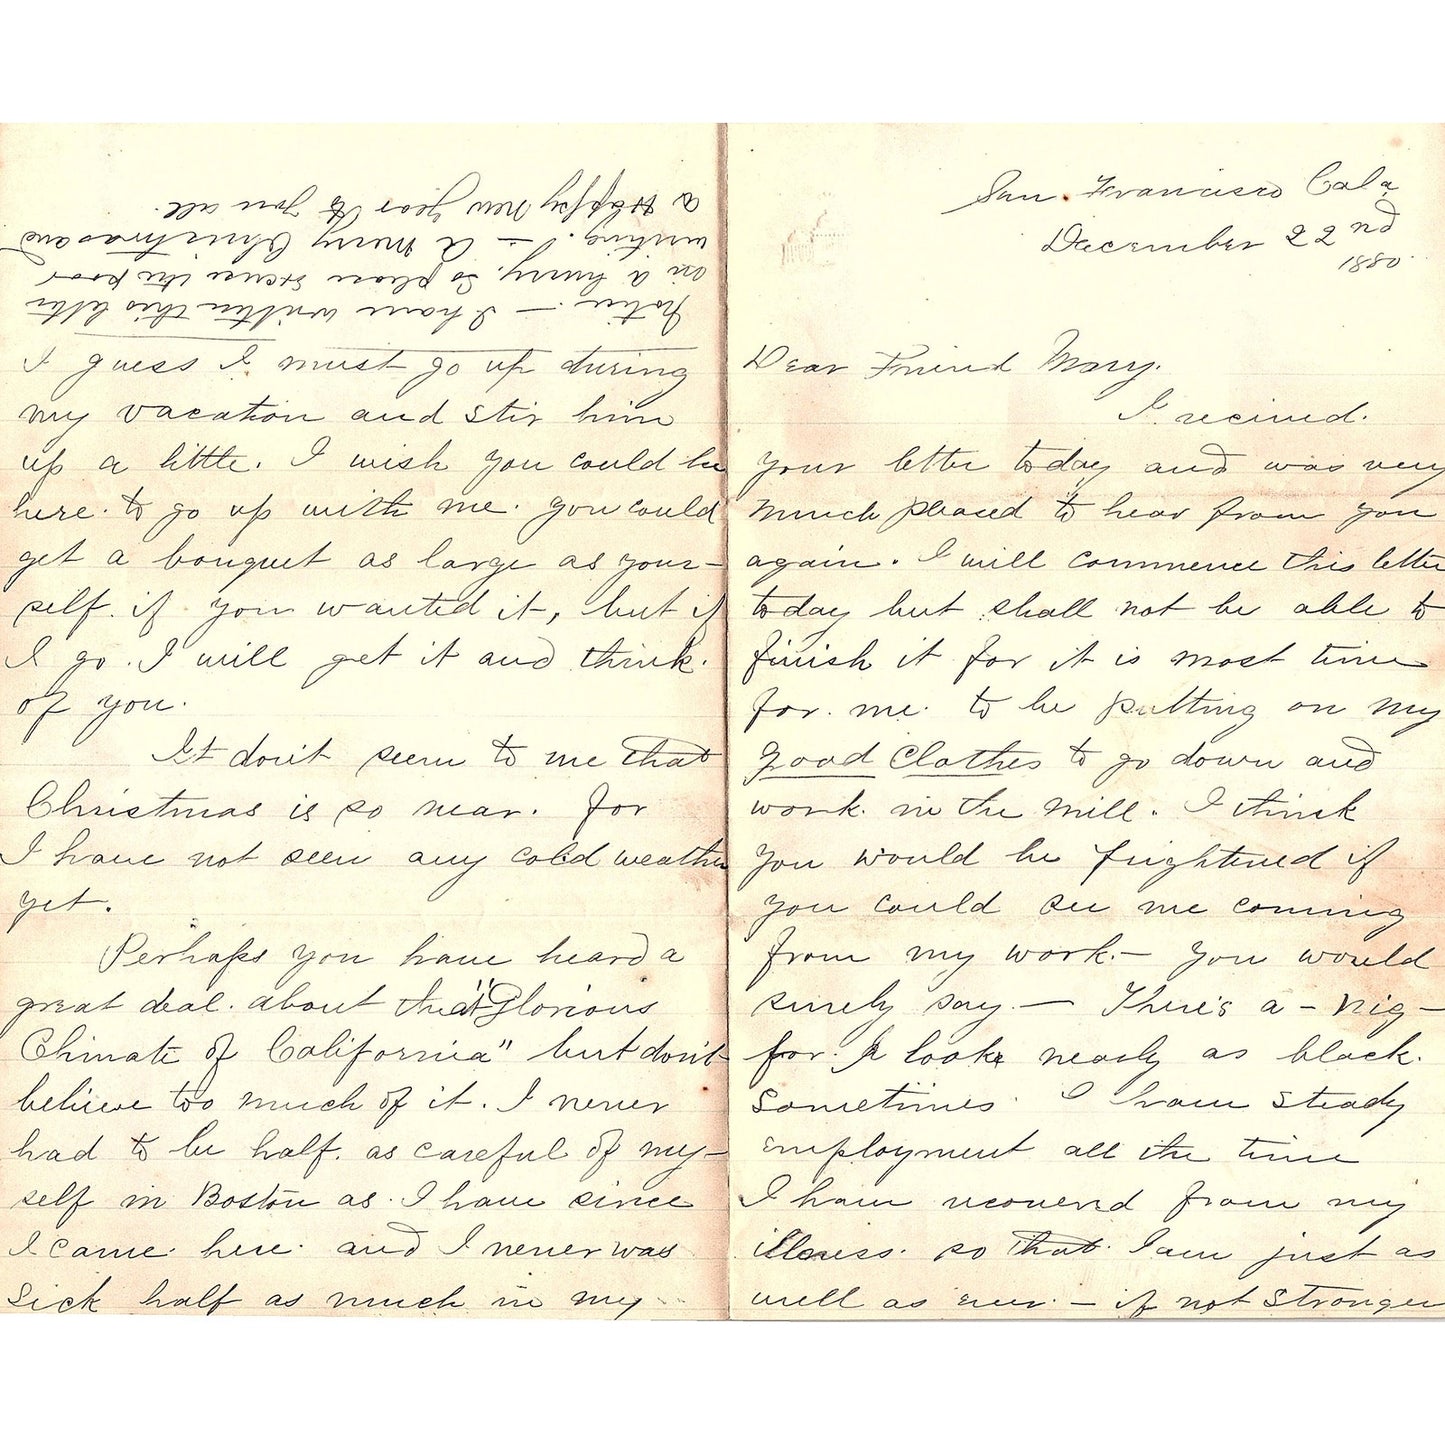 San. Francisco Cala
December 22nd
1880.
Dear Friend Mary.
I. recieved.
your letter today and was very
much pleased to hear from you
again. I will commence this letter
today but shall not be able to
finish it for it is most time
for. me. to be putting on my
good clothes to go down and
work. in the mill. I think
you would be frightened if
you could see me coming
from my work.— you would
surely say.— There's a - nig-
for. I look nearly as black.
sometimes. I have steady
employment all the time
I have recovered from my
illness. so that. I am just as
well as ever. - if not stronger
I guess I must go up during
my vacation and stir him
up a little. I wish you could be
here. to go up with me. you could
get a bouquet as large as your-
self. if you wanted it, but if
I go. I will get it and think.
of you.
It don't seem to me that
Christmas is so near. for
I have not seen any cold weather
yet.
Perhaps you have heard a
great deal. about the "Glorious
Climate of California" but don't
believe too much of it. I never
had to be half. as careful of my-
self in Boston as. I have since
I came. here. and I never was
sick half as much in my
Notice.— I have written this letter
in a hurry. so please excuse the poor
writing.!- A Merry Christmas and
a Happy New Year to you all.